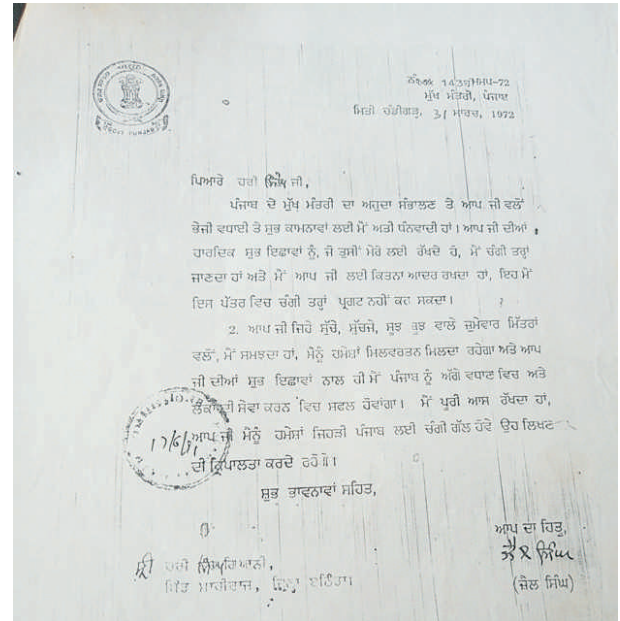 GOVT. PUNJAB
ਮੁੱਖ ਮੰਤਰੀ, ਪੰਜਾਬ
ਮਿਤੀ ਚੰਡੀਗੜ੍ਹ, 31 ਮਾਰਚ, 1972
ਪਿਆਰੇ ਹਰੀ ਸਿੰਘ ਜੀ,
ਪੰਜਾਬ ਦੇ ਮੁੱਖ ਮੰਤਰੀ ਦਾ ਅਹੁਦਾ ਸੰਭਾਲਣ ਤੇ ਆਪ ਜੀ ਵਲੋਂ
ਭੇਜੀ ਵਧਾਈ ਤੇ ਸ਼ੁਭ ਕਾਮਨਾਵਾਂ ਲਈ ਮੈਂ ਅਤੀ ਧੰਨਵਾਦੀ ਹਾਂ। ਆਪ ਜੀ ਦੀਆਂ
ਹਾਰਦਿਕ ਸ਼ੁਭ ਇਛਾਵਾਂ ਨੂੰ, ਜੋ ਤੁਸੀਂ ਮੇਰੇ ਲਈ ਰੱਖਦੇ ਹੋ, ਮੈਂ ਚੰਗੀ ਤਰ੍ਹਾਂ
ਜਾਣਦਾ ਹਾਂ ਅਤੇ ਮੈਂ ਆਪ ਜੀ ਲਈ ਕਿਤਨਾ ਆਦਰ ਰਖਦਾ ਹਾਂ, ਇਹ ਮੈਂ
ਇਸ ਪੱਤਰ ਵਿਚ ਚੰਗੀ ਤਰ੍ਹਾਂ ਪ੍ਰਗਟ ਨਹੀਂ ਕਰ ਸਕਦਾ।
2. ਆਪ ਜੀ ਜਿਹੇ ਸੁੱਚੇ, ਸੁੱਚਜੇ, ਸੂਝ ਬੂਝ ਵਾਲੇ ਜ਼ੁਮੇਵਾਰ ਮਿੱਤਰਾਂ
ਵਲੋਂ, ਮੈਂ ਸਮਝਦਾ ਹਾਂ, ਮੈਨੂੰ ਹਮੇਸ਼ਾਂ ਮਿਲਵਰਤਨ ਮਿਲਦਾ ਰਹੇਗਾ ਅਤੇ ਆਪ
ਜੀ ਦੀਆਂ ਸ਼ੁਭ ਇਛਾਵਾਂ ਨਾਲ ਹੀ ਮੈਂ ਪੰਜਾਬ ਨੂੰ ਅੱਗੇ ਵਧਾਣ ਵਿਚ ਅਤੇ
ਲੋਕਾਂ ਦੀ ਸੇਵਾ ਕਰਨ ਵਿਚ ਸਫਲ ਹੋਵਾਂਗਾ। ਮੈਂ ਪੂਰੀ ਆਸ ਰੱਖਦਾ ਹਾਂ,
ਆਪ ਜੀ ਮੈਨੂੰ ਹਮੇਸ਼ਾਂ ਜਿਹੜੀ ਪੰਜਾਬ ਲਈ ਚੰਗੀ ਗੱਲ ਹੋਵੇ ਉਹ ਲਿਖਣ
ਦੀ ਕ੍ਰਿਪਾਲਤਾ ਕਰਦੇ ਰਹੋਗੇ।
ਸ਼ੁਭ ਭਾਵਨਾਵਾਂ ਸਹਿਤ,
ਆਪ ਦਾ ਹਿਤੂ,
ਜ਼ੈਲ ਸਿੰਘ
(ਜ਼ੇਲ ਸਿੰਘ)
ਸ੍ਰੀ ਹਰੀ ਸਿੰਘ ਗਿਆਨੀ,
ਪਿੰਡ ਮਾਹੀਰਾਜ, ਜ਼ਿਲਾ ਬਠਿੰਡਾ।